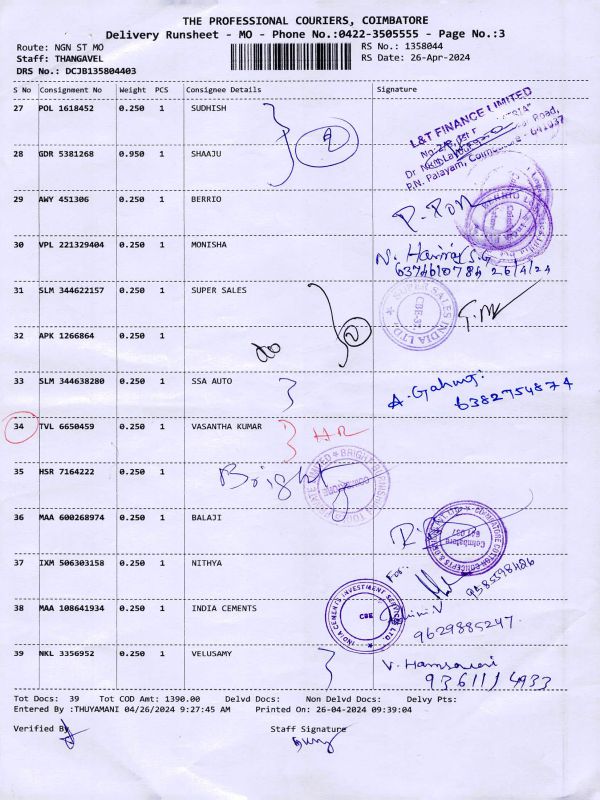 THE PROFESSIONAL COURIERS, COIMBATORE
Delivery Runsheet - MO - Phone No.:0422-3505555 - Page No.:3
Route: NGN ST MO
RS No.: 1358044
Staff: THANGAVEL
RS Date: 26-Apr-2024
DRS No.: DCJB135804403
S No Consignment No Weight PCS Consignee Details Signature
27 POL 1618452 0.250 1 SUDHISH
L&T FINANCE LIMITED
P.N. Palayam, Coimbatore - 641037
28 GDR 5381268 0.950 1 SHAAJU
29 AWY 451306 0.250 1 BERRIO
30 VPL 221329404 0.250 1 MONISHA
26/4/24
31 SLM 344622157 0.250 1 SUPER SALES
SUPER SALES INDIA LTD.
CBE-37
2
32 APK 1266864 0.250 1
33 SLM 344638280 0.250 1 SSA AUTO
6382754874
34 TVL 6650459 0.250 1 VASANTHA KUMAR
HR
35 HSR 7164222 0.250 1
Bright
36 MAA 600268974 0.250 1 BALAJI
Coimbatore
641 037
37 IXM 506303158 0.250 1 NITHYA
For:
9385598486
38 MAA 108641934 0.250 1 INDIA CEMENTS
INDIA CEMENTS INVESTMENT SERVICES LTD.
CBE
9629885247.
39 NKL 3356952 0.250 1 VELUSAMY
Tot Docs: 39 Tot COD Amt: 1390.00 Delvd Docs: Non Delvd Docs: Delvy Pts:
Entered By :THUYAMANI 04/26/2024 9:27:45 AM Printed On: 26-04-2024 09:39:04
Verified By
Staff Signature